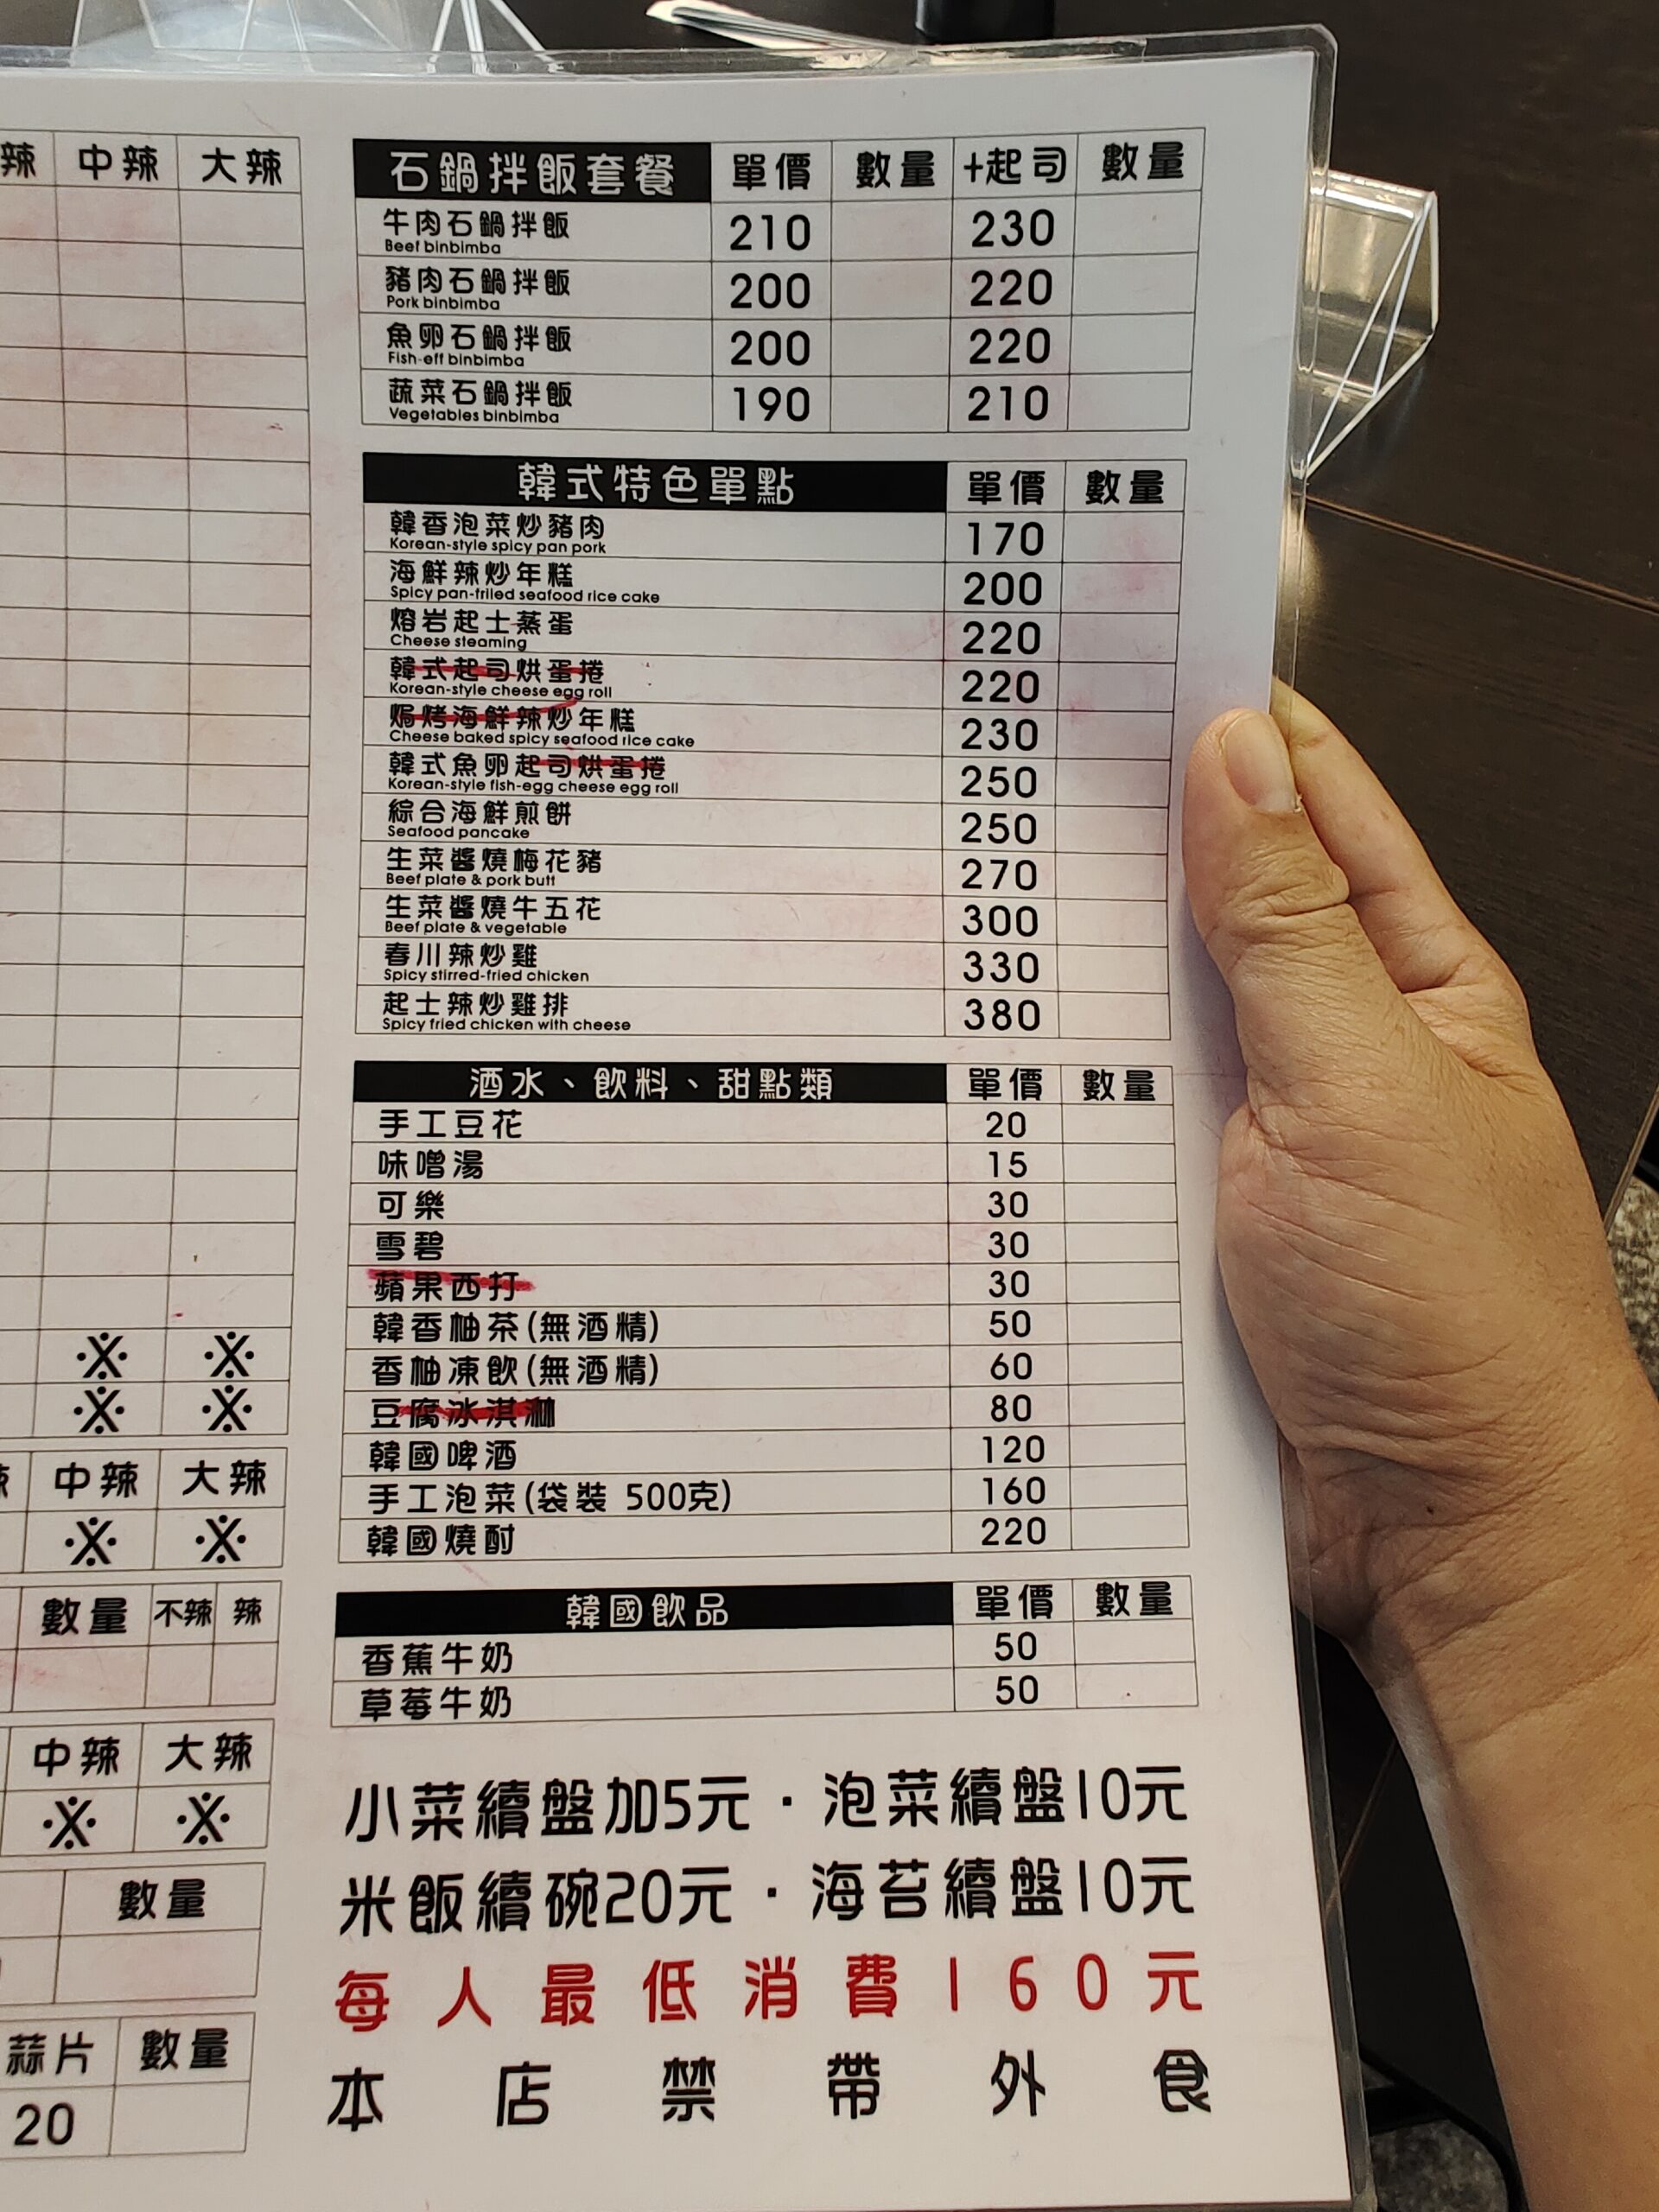 辣 中辣 大辣
※ ※
※ ※
辣 中辣 大辣
※ ※
數量 不辣 辣
中辣 大辣
※ ※
數量
蒜片 數量
20
石鍋拌飯套餐 單價 數量 +起司 數量
牛肉石鍋拌飯 210 230
Beef binbimba
豬肉石鍋拌飯 200 220
Pork binbimba
魚卵石鍋拌飯 200 220
Fish-eff binbimba
蔬菜石鍋拌飯 190 210
Vegetables binbimba
韓式特色單點 單價 數量
韓香泡菜炒豬肉 170
Korean-style spicy pan pork
海鮮辣炒年糕 200
Spicy pan-friled seafood rice cake
熔岩起士蒸蛋 220
Cheese steaming
韓式起司烘蛋捲 220
Korean-style cheese egg roll
焗烤海鮮辣炒年糕 230
Cheese baked spicy seafood rice cake
韓式魚卵起司烘蛋捲 250
Korean-style fish-egg cheese egg roll
綜合海鮮煎餅 250
Seafood pancake
生菜醬燒梅花豬 270
Beef plate & pork butt
生菜醬燒牛五花 300
Beef plate & vegetable
春川辣炒雞 330
Spicy stirred-fried chicken
起士辣炒雞排 380
Spicy fried chicken with cheese
酒水、飲料、甜點類 單價 數量
手工豆花 20
味噌湯 15
可樂 30
雪碧 30
蘋果西打 30
韓香柚茶(無酒精) 50
香柚凍飲(無酒精) 60
豆腐冰淇淋 80
韓國啤酒 120
手工泡菜(袋裝 500克) 160
韓國燒酎 220
韓國飲品 單價 數量
香蕉牛奶 50
草莓牛奶 50
小菜續盤加5元·泡菜續盤10元
米飯續碗20元·海苔續盤10元
每人最低消費160元
本店禁帶外食